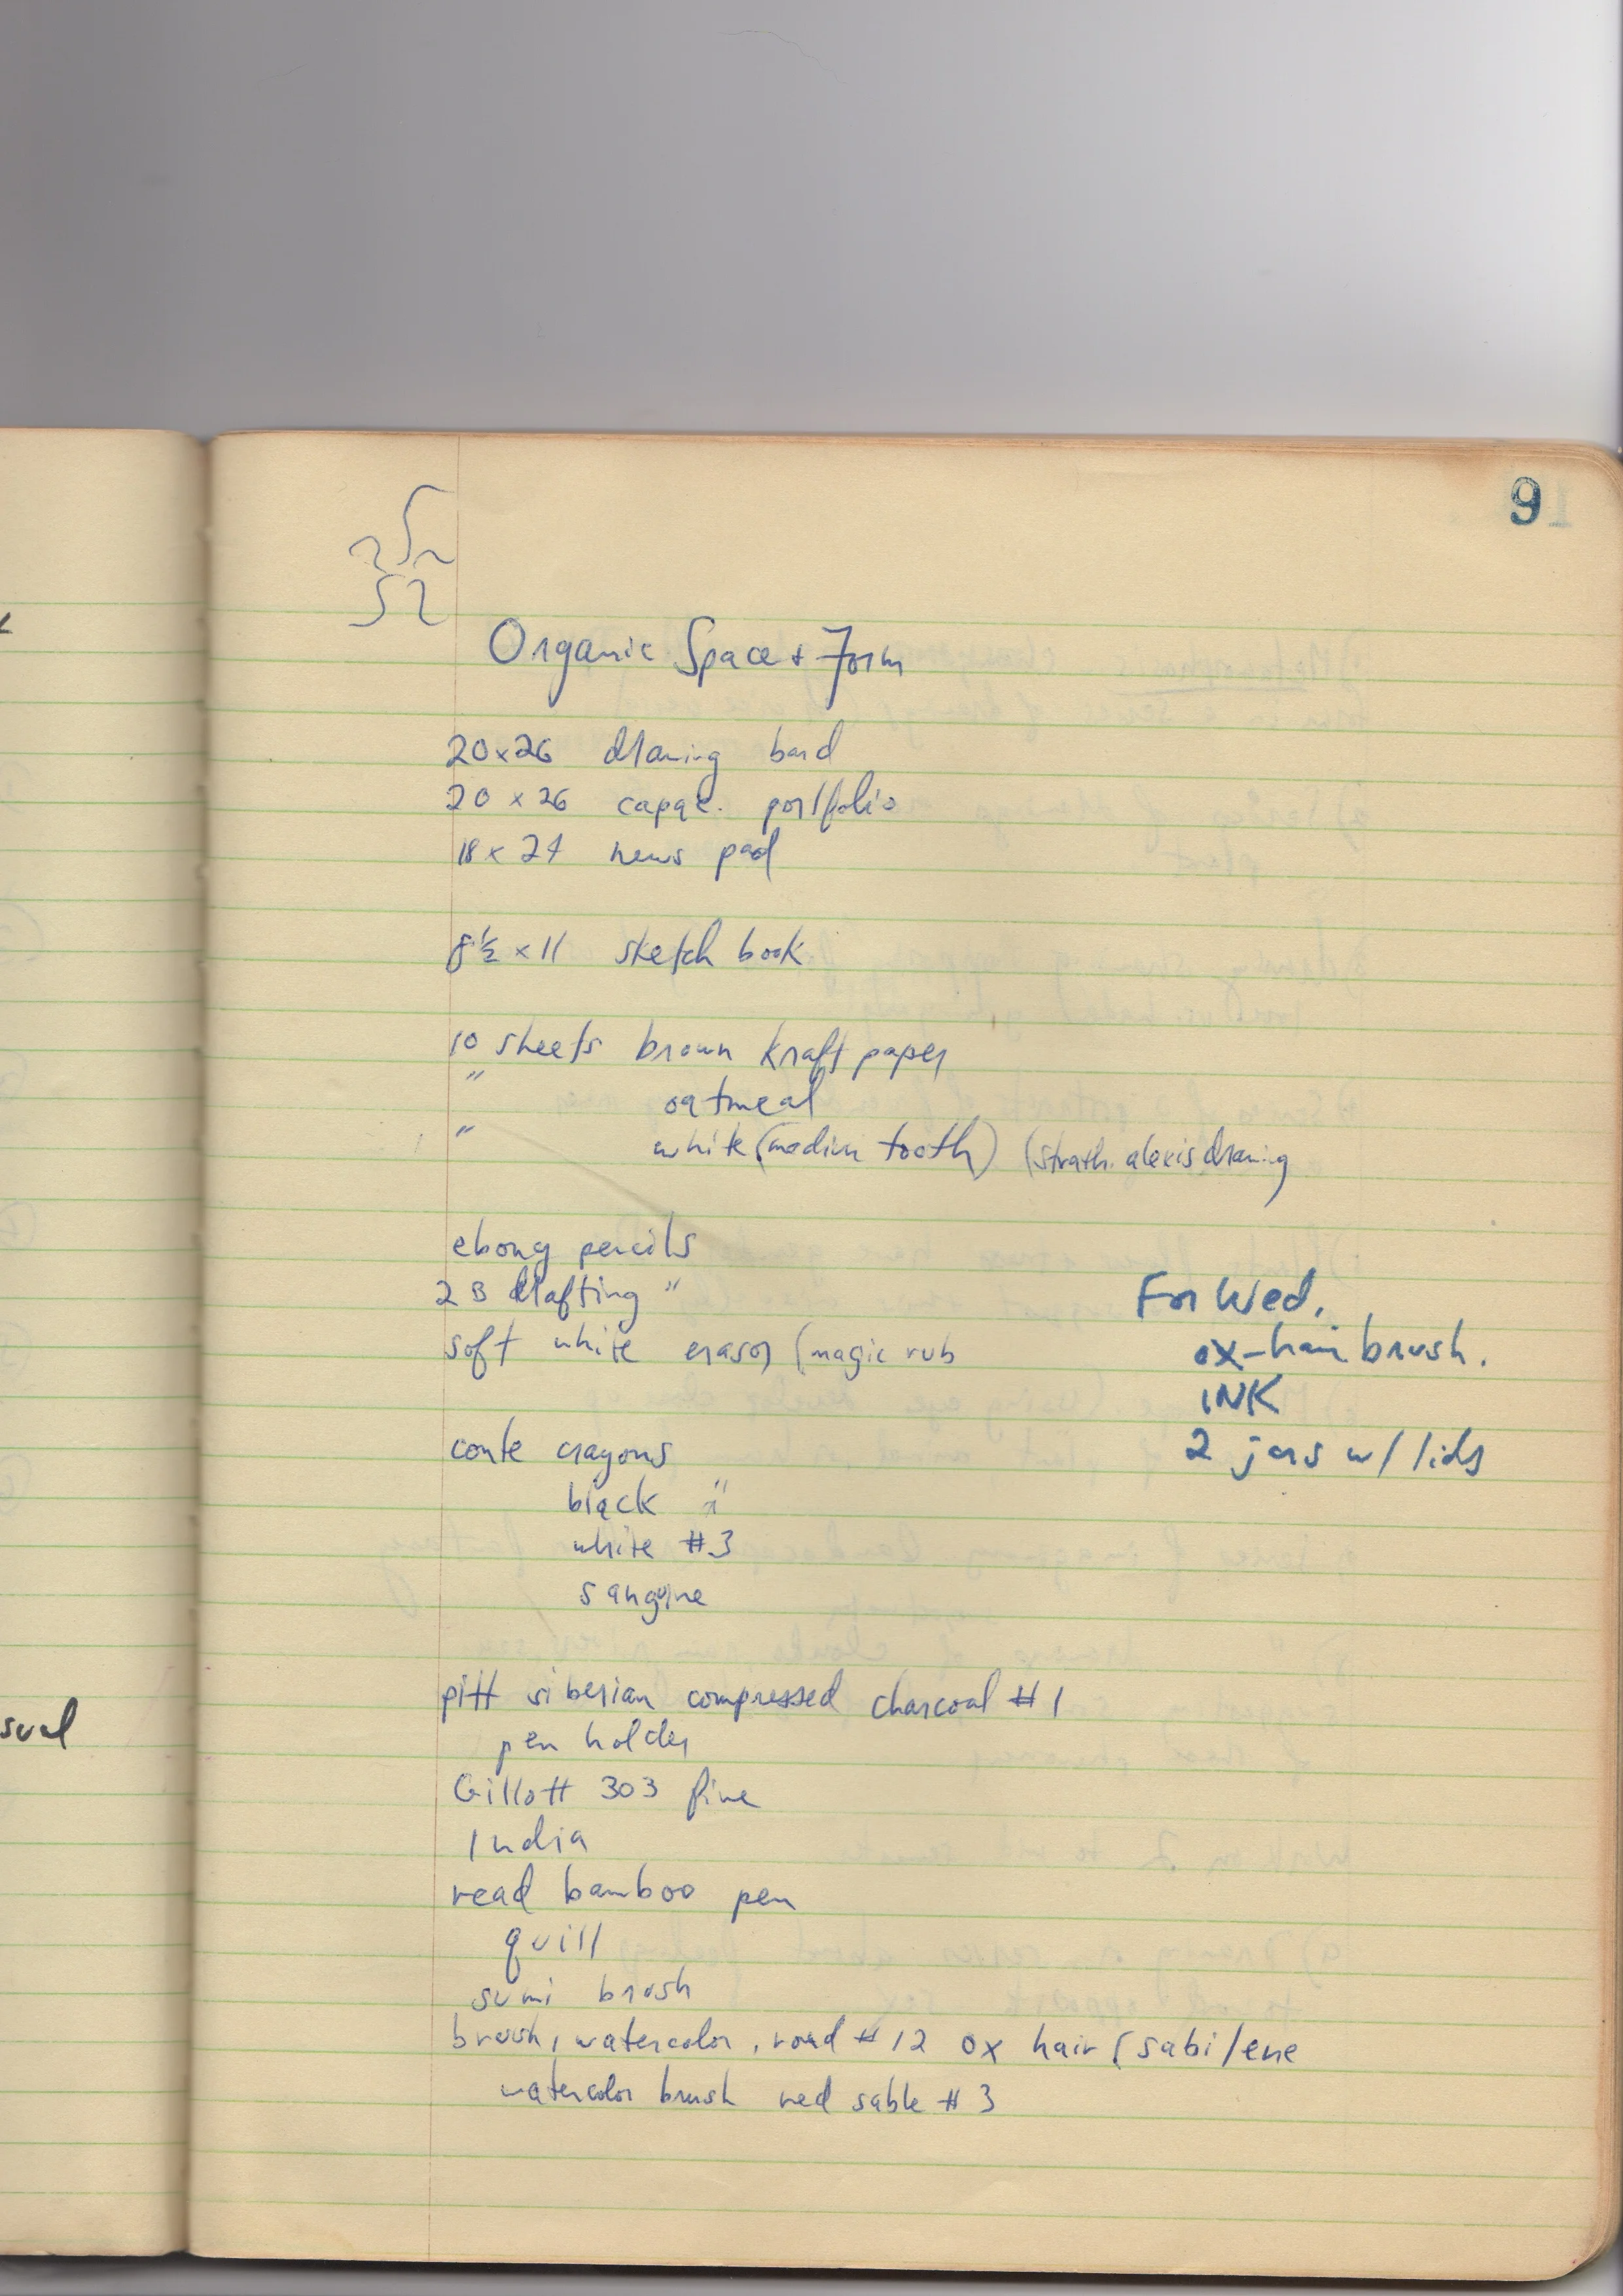 9
Organic Space + Form
20x26 drawing bard
20 x 26 capac. portfolio
18 x 24 news pad
8½ x 11 sketch book
10 sheets brown kraft paper
" oatmeal
" white (medium tooth) (strath. alexis drawing
ebony pencils
2B drafting "
soft white erasor (magic rub
For Wed.
ox-hair brush.
INK
2 jars w/ lids
conte crayons
black "
white #3
sanguine
pitt siberian compressed charcoal #1
pen holder
Gillott 303 fine
India
read bamboo pen
quill
sumi brush
brush, watercolor, round #12 ox hair (sabilene
watercolor brush red sable #3
sual